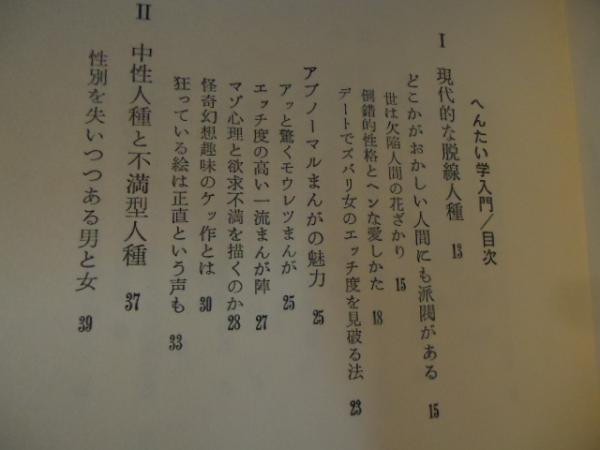 へんたい学入門／目次
I 現代的な脱線人種 13
どこかがおかしい人間にも派閥がある 15
世は欠陥人間の花ざかり 15
倒錯的性格とヘンな愛しかた 18
デートでズバリ女のエッチ度を見破る法 23
アブノーマルまんがの魅力 25
アッと驚くモウレツまんが 25
エッチ度の高い一流まんが陣 27
マゾ心理と欲求不満を描くのか 28
怪奇幻想趣味のケッ作とは 30
狂っている絵は正直という声も 33
II 中性人種と不満型人種 37
性別を失いつつある男と女 39